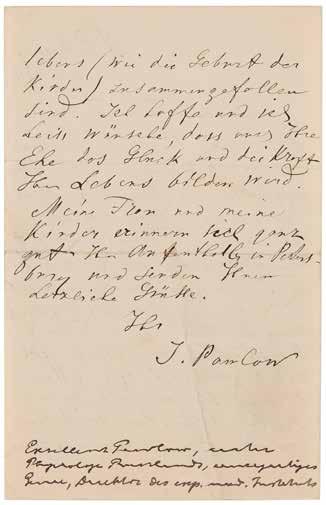 lebens (wie die Geburt der
Kinder) zusammengefallen
sind. Ich hoffe und ich
heiss wünsche, dass auch Ihre
Ehe das Glück und die Kraft
Ihres Lebens bilden wird.
Meine Frau und meine
Kinder erinnern sich ganz
gut Ihr Aufenthalt in Peters-
burg und senden Ihnen
herzliche Grüsse.
Ihr
J. Pawlow
Exzellenz Pawlow, erster
Physiologe Russlands,
Genie, Direktor des imp. med. Instituts